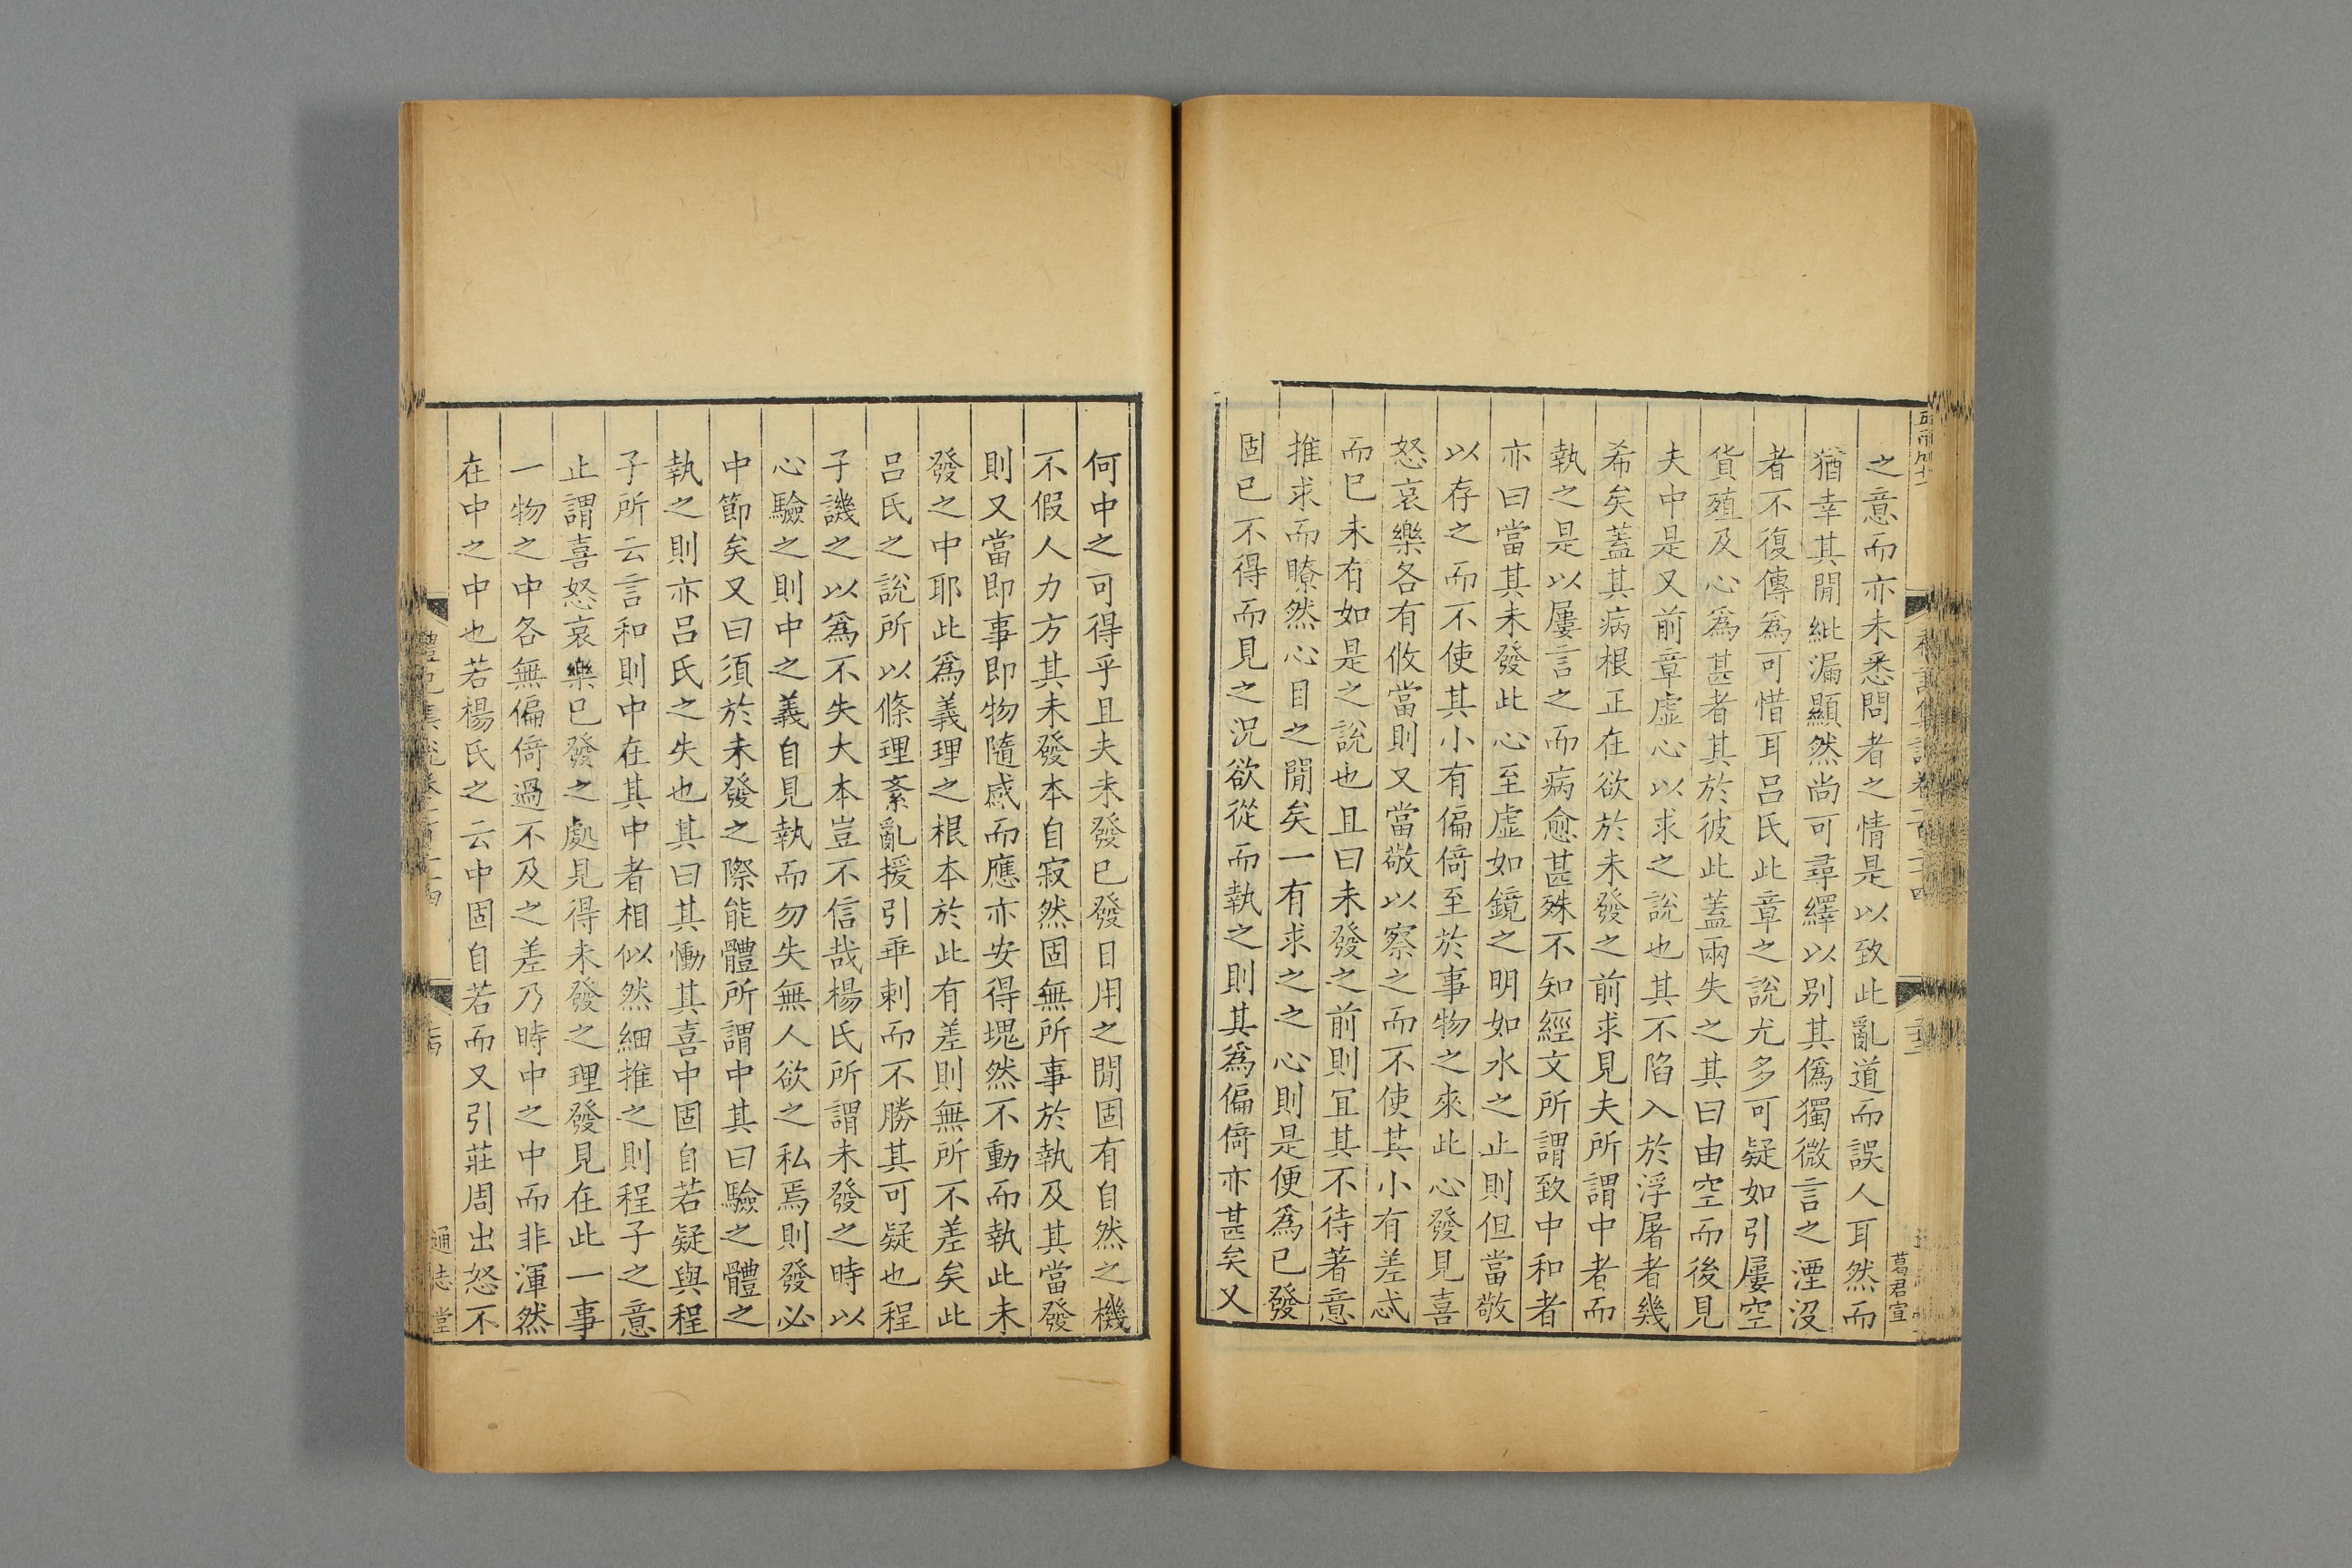 之意而亦未悉問者之情是以致此亂道而誤人耳然而
猶幸其閒紕漏顯然尚可尋繹以别其僞獨微言之湮沒
者不復傳爲可惜耳吕氏此章之說尤多可疑如引屢空
貨殖及心爲甚者其於彼此蓋兩失之其曰由空而後見
夫中是又前章虚心以求之說也其不陷入於浮屠者幾
希矣蓋其病根正在欲於未發之前求見夫所謂中者而
執之是以屢言之而病愈甚殊不知經文所謂致中和者
亦曰當其未發此心至虚如鏡之明如水之止則但當敬
以存之而不使其小有偏倚至於事物之來此心發見喜
怒哀樂各有攸當則又當敬以察之而不使其小有差忒
而已未有如是之說也且曰未發之前則宜其不待著意
推求而瞭然心目之閒矣一有求之之心則是便爲已發
固已不得而見之況欲從而執之則其爲偏倚亦甚矣又
葛君宣
何中之可得乎且夫未發已發日用之閒固有自然之機
不假人力方其未發本自寂然固無所事於執及其當發
則又當即事即物隨感而應亦安得塊然不動而執此未
發之中耶此爲義理之根本於此有差則無所不差矣此
吕氏之說所以條理紊亂援引乖剌而不勝其可疑也程
子譏之以爲不失大本豈不信哉楊氏所謂未發之時以
心驗之則中之義自見執而勿失無人欲之私焉則發必
中節矣又曰須於未發之際能體所謂中其曰驗之體之
執之則亦吕氏之失也其曰其慟其喜中固自若疑與程
子所云言和則中在其中者相似然細推之則程子之意
止謂喜怒哀樂已發之處見得未發之理發見在此一事
一物之中各無偏倚過不及之差乃時中之中而非渾然
在中之中也若楊氏之云中固自若而又引莊周出怒不
通志堂